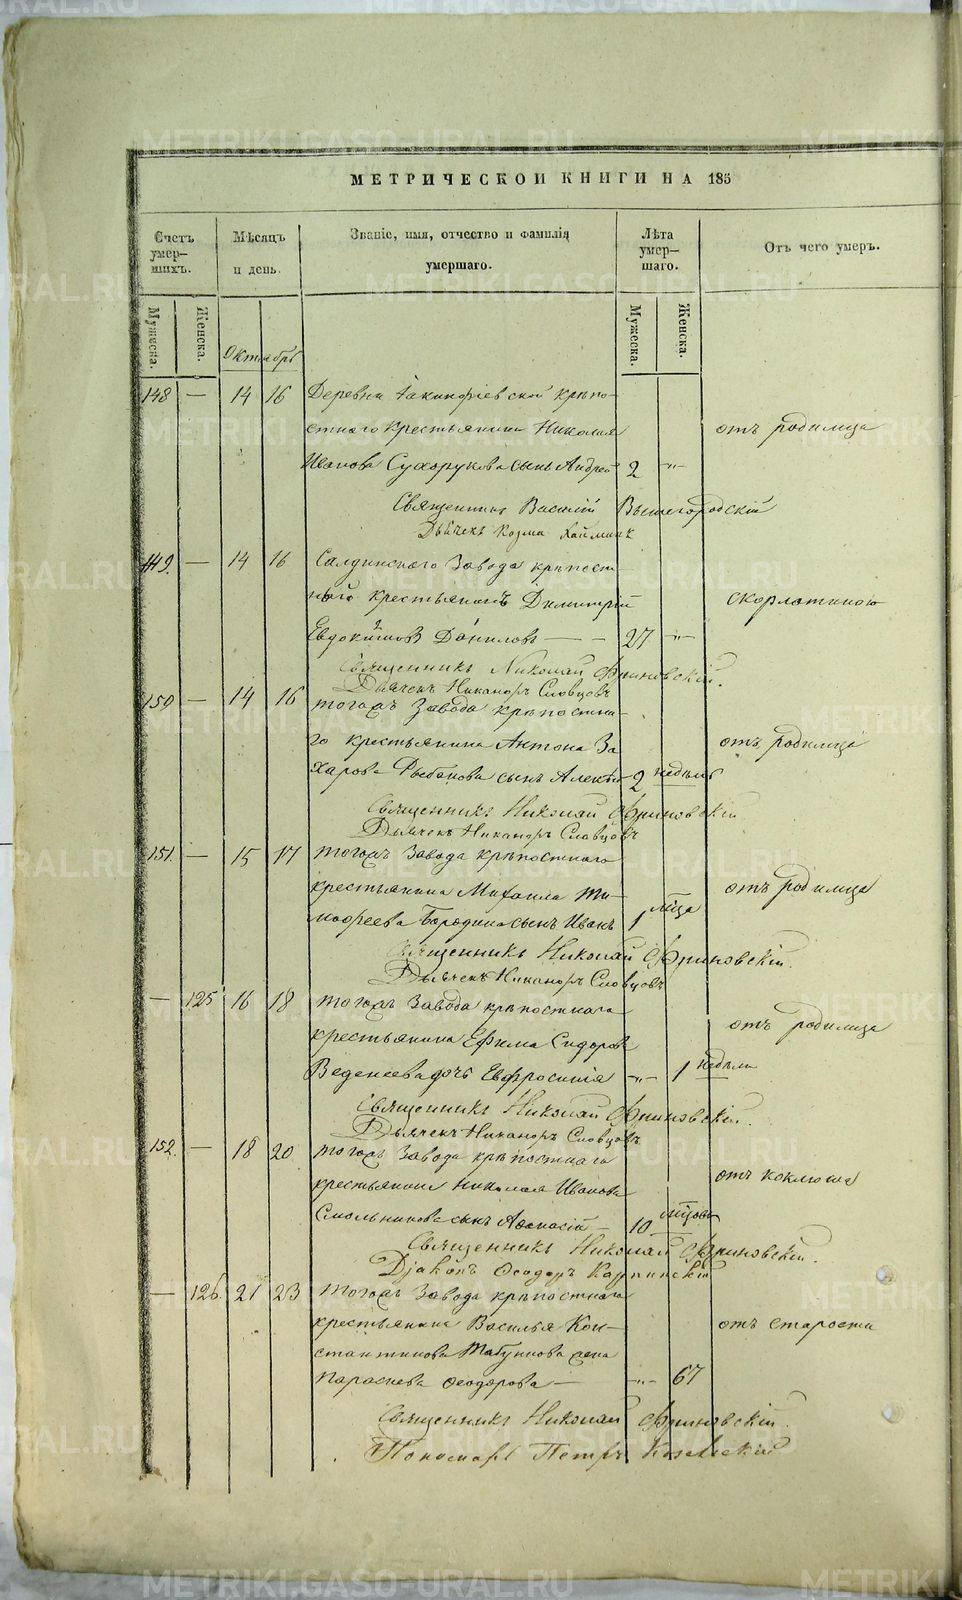 МЕТРИЧЕСКОЙ КНИГИ НА 185
Счетъ умер-шихъ.
Мѣсяцъ и день.
Званіе, имя, отчество и фамилія умершаго.
Лѣта умер-шаго.
Отъ чего умеръ.
Мужеска.
Женска.
Мужеска.
Женска.
Октябрь
148 — 14 16 Деревни Акинфіевской крѣпо-
стнаго крестьянина Николая отъ родимца
Иванова Сухорукова сынъ Андрей 2 -"-
Священникъ Василій Вышегородскій
Дьячекъ Козма
149. — 14 16 Салдинскаго Завода крѣпост-
ной крестьянинъ Димитрій скорлатиною
Евдокимовъ Даниловъ — - 27 -"-
Священникъ Николай Фриновскій.
Дьячекъ Никаноръ Словцовъ
150 — 14 16 тогожъ Завода крѣпостна-
го крестьянина Антона За- отъ родимца
харова Рыбакова сынъ Алексѣй 2 недѣль
Священникъ Николай Фриновскій
Дьячекъ Никаноръ Словцовъ
151. — 15 17 тогожъ Завода крѣпостнаго
крестьянина Михаила Ти- отъ родимца
мофеева Бородина сынъ Иванъ 1 мѣсца
Священникъ Николай Фриновскій.
Дьячекъ Никаноръ Словцовъ
— 125 16 18 тогожъ Завода крѣпостнаго
крестьянина Ефима Сидорова отъ родимца
Веденеева дочь Евфросинія -"- 1 недѣли
Священникъ Николай Фриновскій.
Дьячекъ Никаноръ Словцовъ
152. — 18 20 тогожъ Завода крѣпостнаго
крестьянина Николая Иванова отъ коклюша
Смольникова сынъ Афанасій — 10 мѣсцовъ
Священникъ Николай Фриновскій.
Діаконъ Феодоръ Карпинскій
— 126. 21 23 тогожъ Завода крѣпостнаго
крестьянина Василья Кон- отъ старости
стантинова жена
Параскева Феодорова — -"- 67
Священникъ Николай Фриновскій.
Пономарь Петръ
METRIKI.GASO-URAL.RU